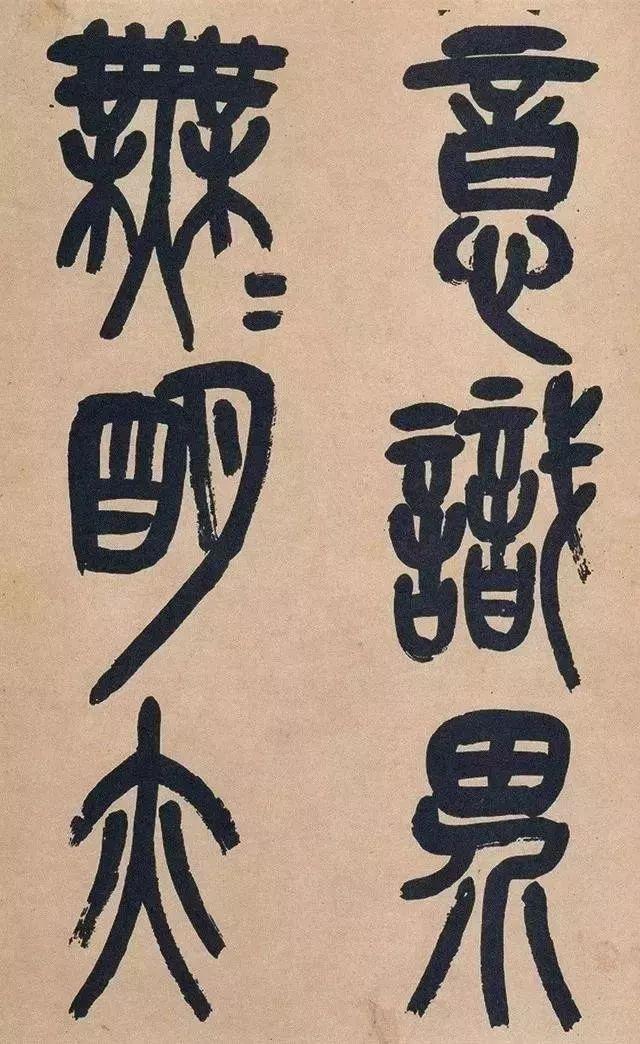 意識界
無〻明亦